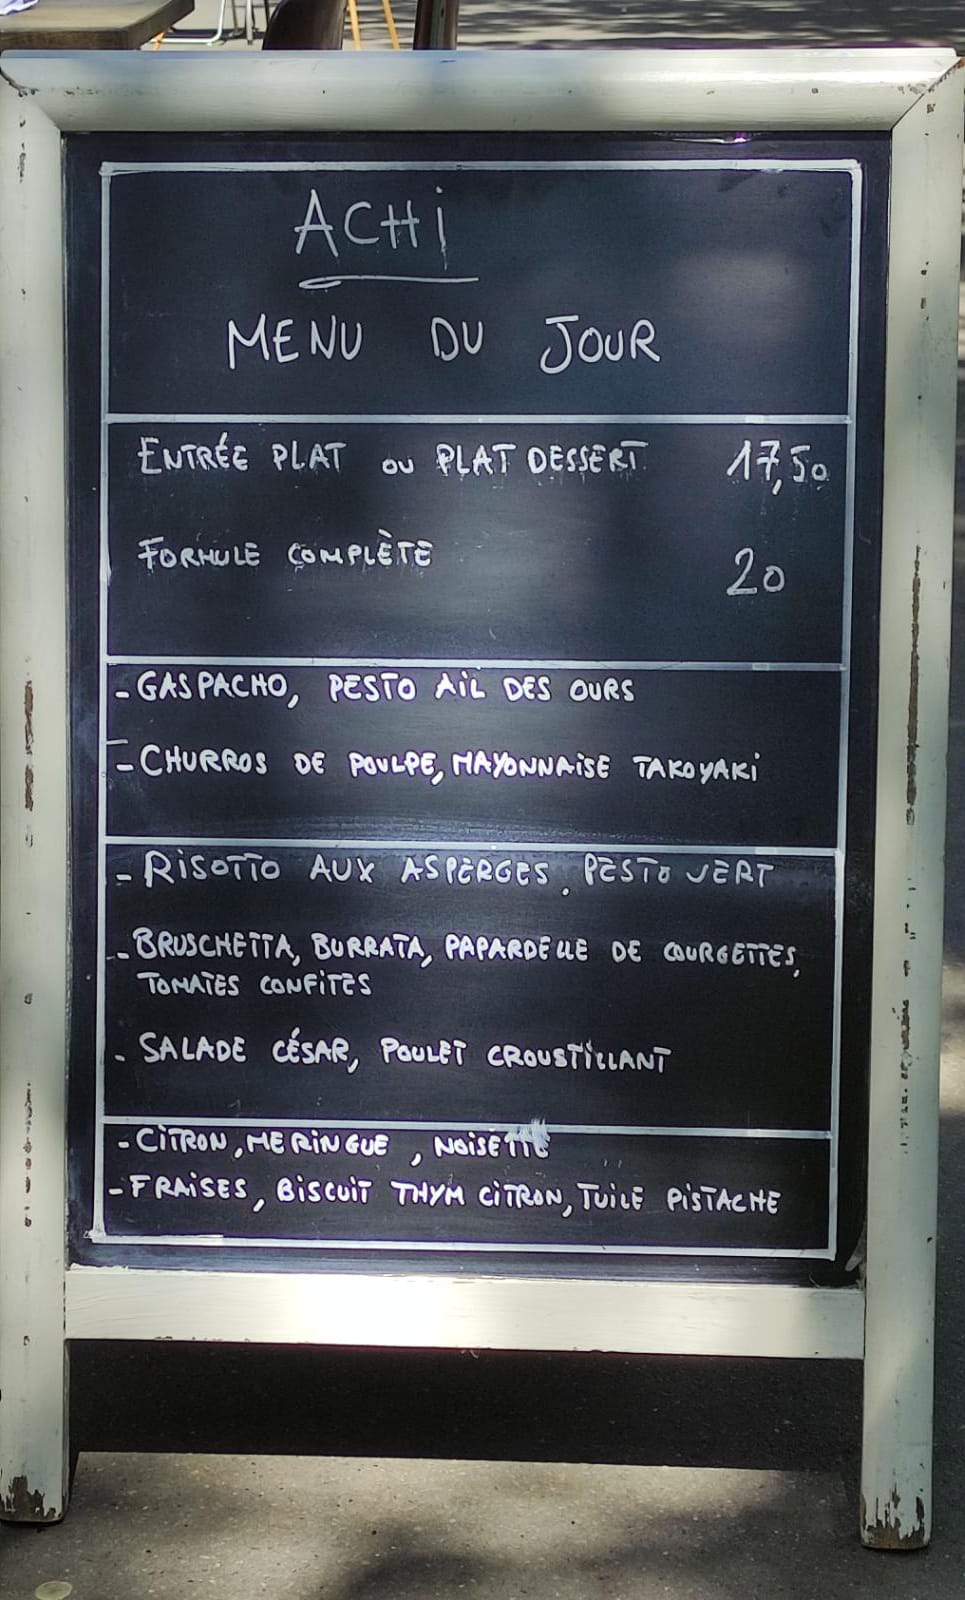 ACHi
MENU DU JOUR
ENTRÉE PLAT ou PLAT DESSERT 17,50
FORMULE COMPLÈTE 20
- GASPACHO, PESTO AiL DES OURS
- CHURROS DE POULPE, MAYONNAiSE TAKOYAKi
- RiSOTTO AUX ASPERGES, PESTO VERT
- BRUSCHETTA, BURRATA, PAPARDELLE DE COURGETTES,
TOMATES CONFiTES
- SALADE CÉSAR, POULET CROUSTiLLANT
- CiTRON, MERiNGUE, NOiSETTE
- FRAiSES, BiSCUiT THYM CiTRON, TUiLE PiSTACHE